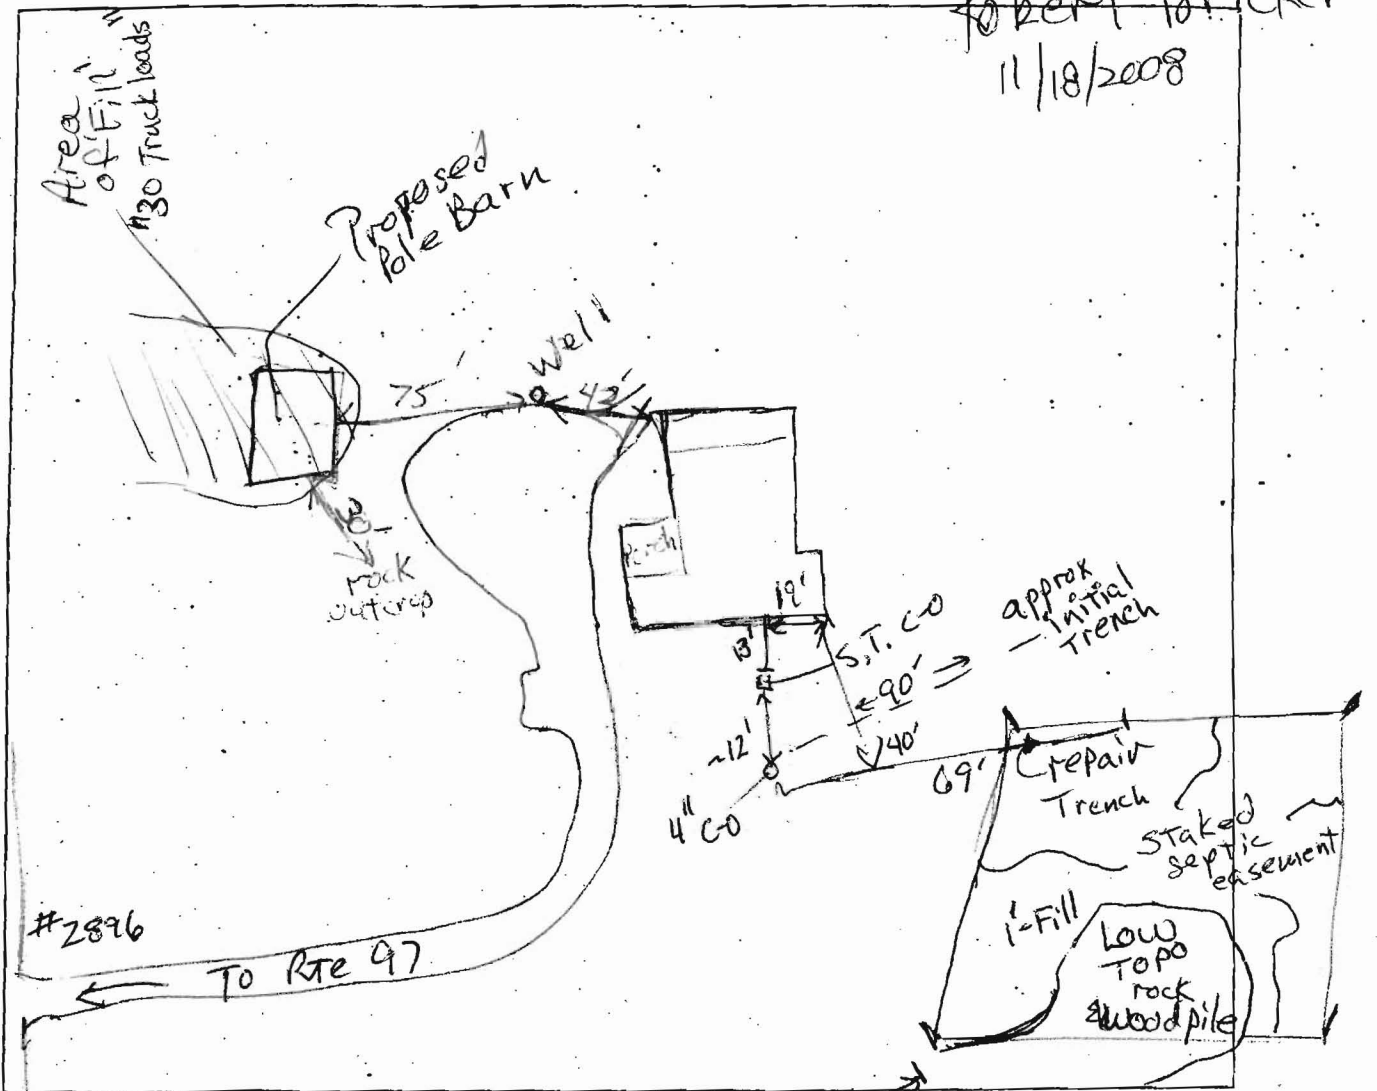 11/18/2008
Area
of "Fill"
"30 Truck loads"
Proposed
Pole Barn
Well
75'
42'
rock
outcrop
Porch
19'
13'
S.T. C-O
approx
initial
Trench
90'
~12'
40'
69'
4" C-O
repair
Trench
Staked
septic
easement
1'-Fill
Low
Topo
rock
& wood pile
#2896
To Rte 97